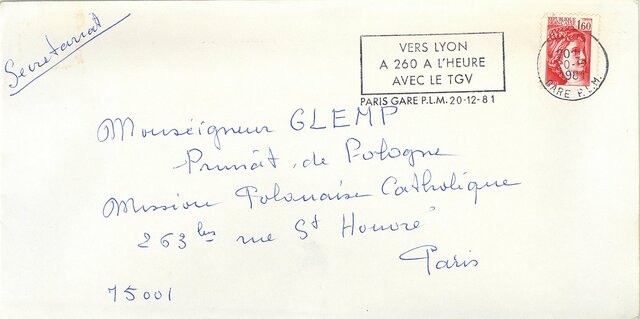 Secretariat
VERS LYON
A 260 A L'HEURE
AVEC LE TGV
PARIS GARE P.L.M. 20-12-81
REPUBLIQUE FRANCAISE
1,60
GARE P.L.M.
Monséigneur GLEMP
Primat de Pologne
Mission Polonaise Catholique
263 bis rue St Honoré
Paris
75001